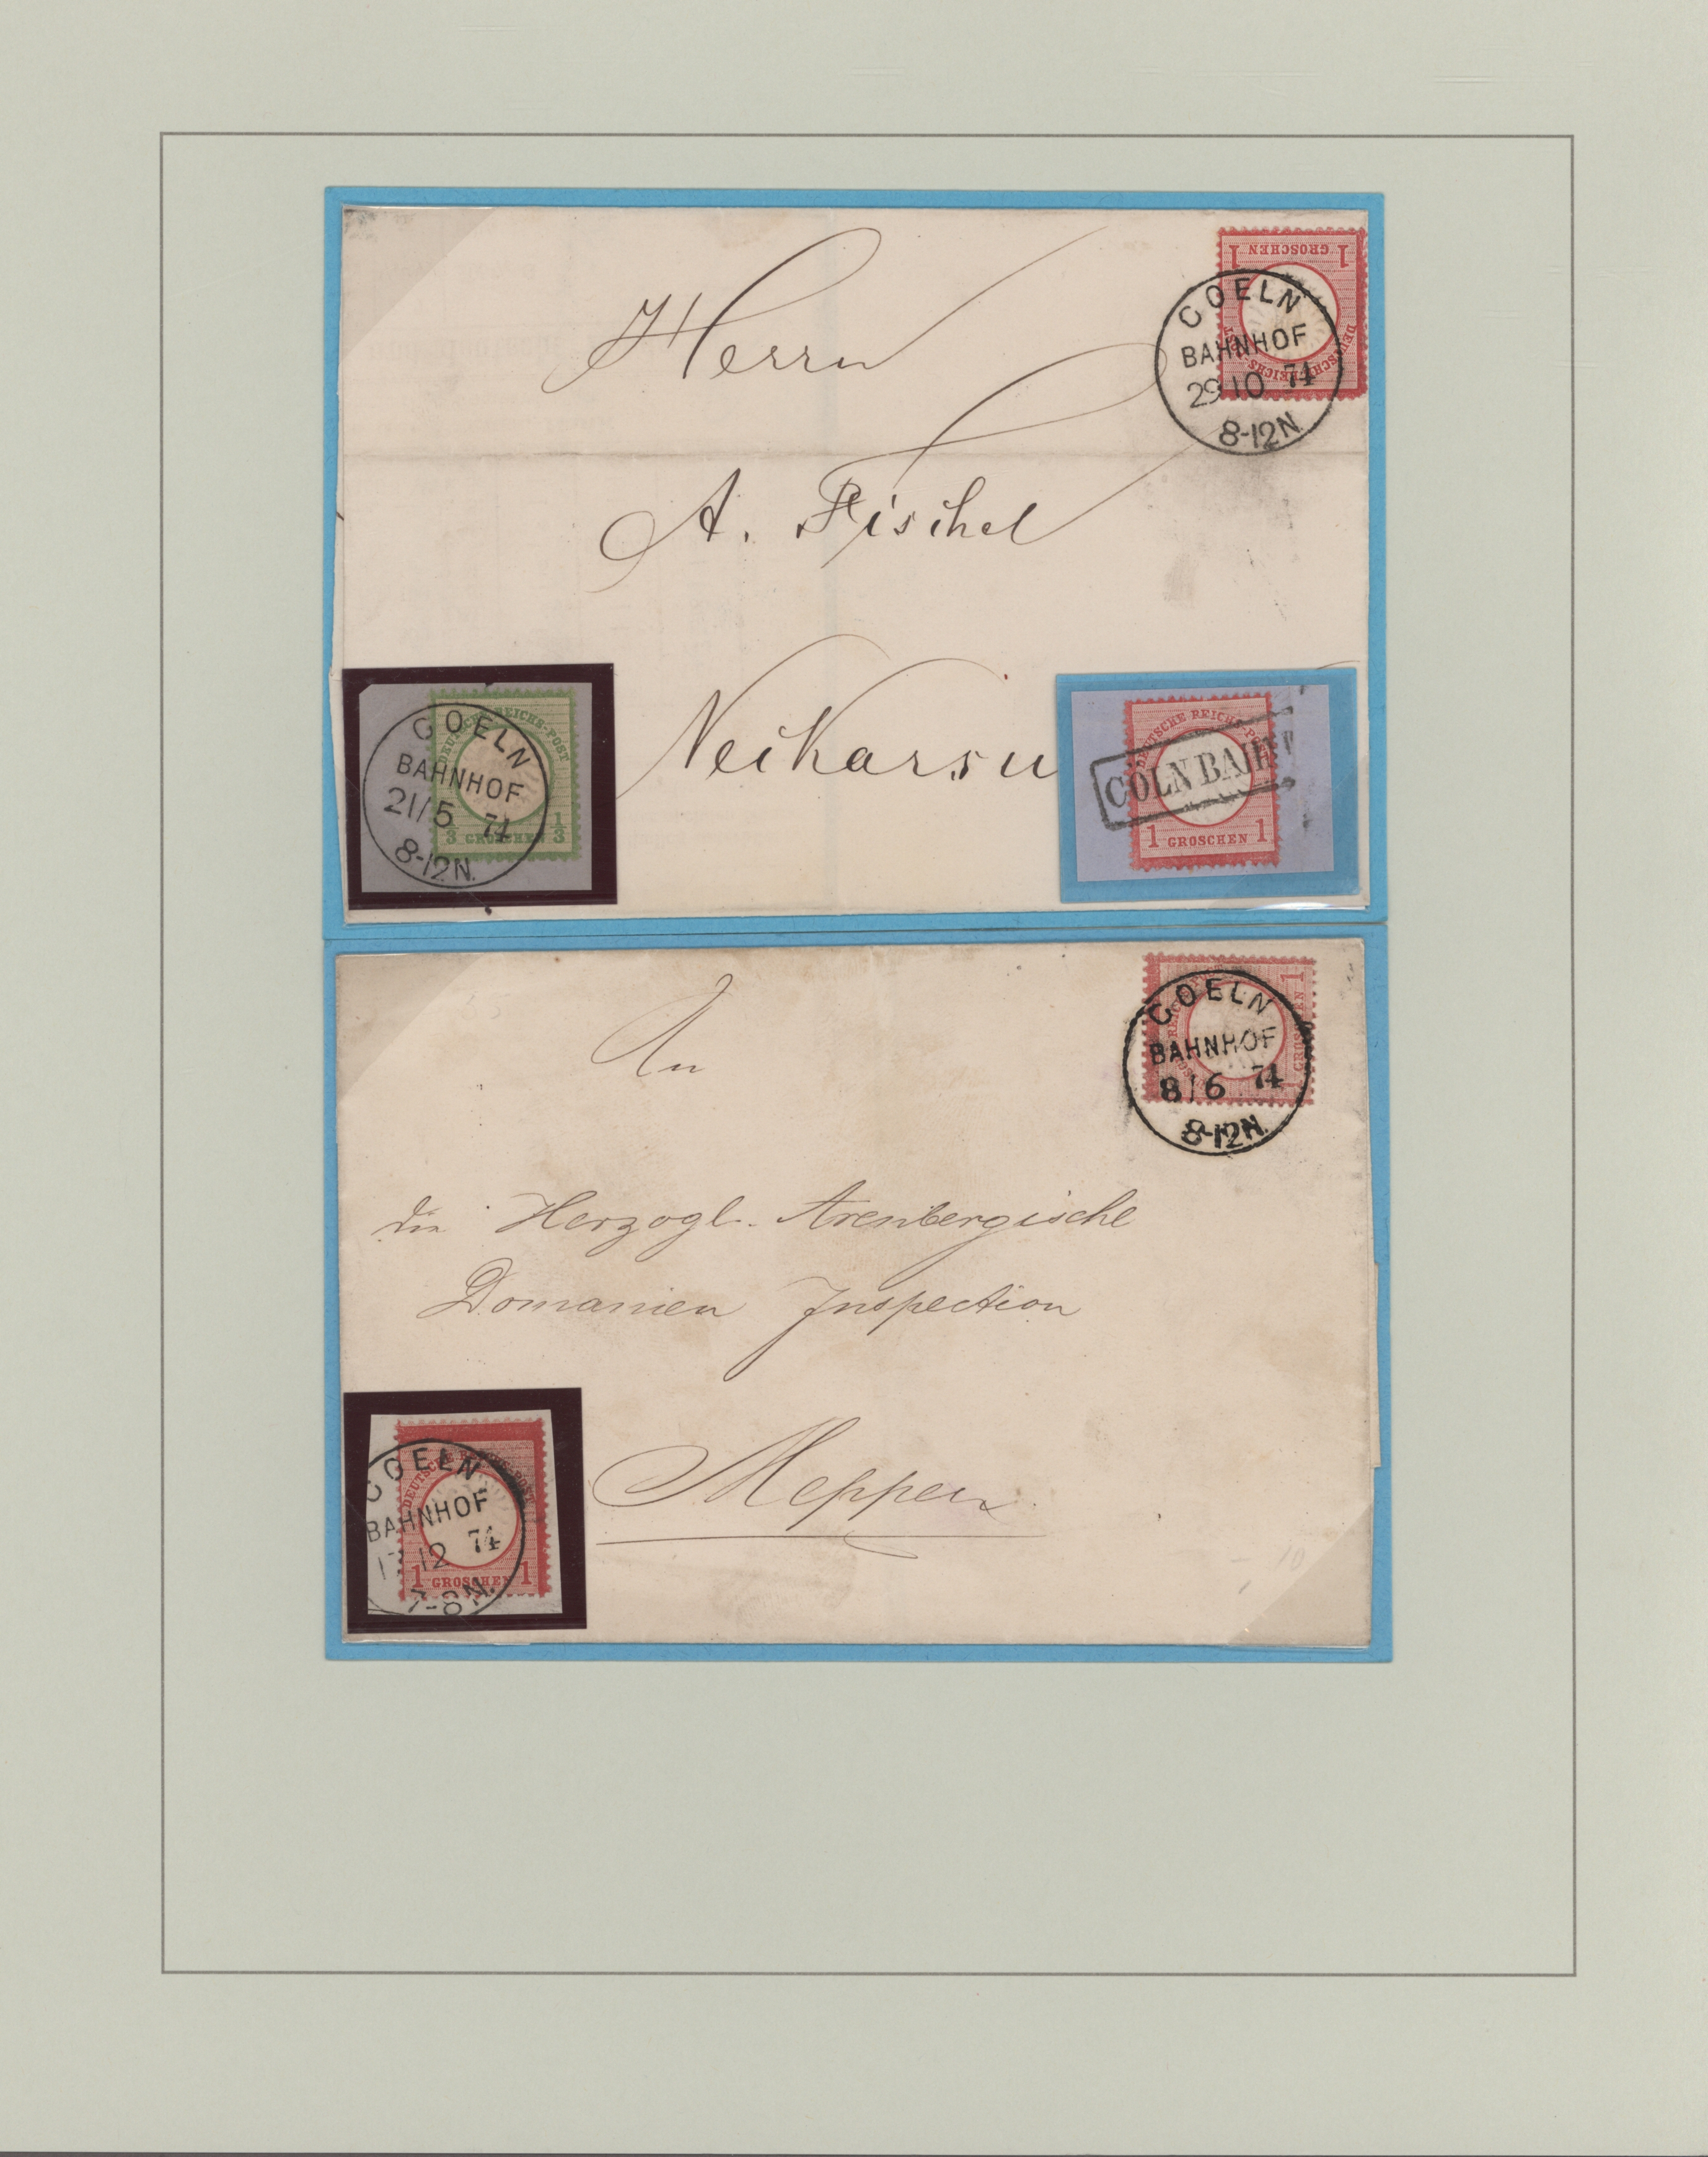 Herrn
A. Fischel
Neckarsu
1 GROSCHEN 1
DEUTSCHE REICHS-POST
COELN
BAHNHOF
29 10 74
8-12N.
DEUTSCHE REICHS-POST
1/3 GROSCHEN 1/3
COELN
BAHNHOF
21/5 74
8-12N.
DEUTSCHE REICHS-POST
1 GROSCHEN 1
CÖLN BAH
An
die Herzogl. Arenbergische
Domainen Inspection
Meppen
GROSCHEN 1
COELN
BAHNHOF
8/6 74
8-12N.
DEUTSCHE REICHS-POST
1 GROSCHEN 1
COELN
BAHNHOF
12 74
7-8N.
10